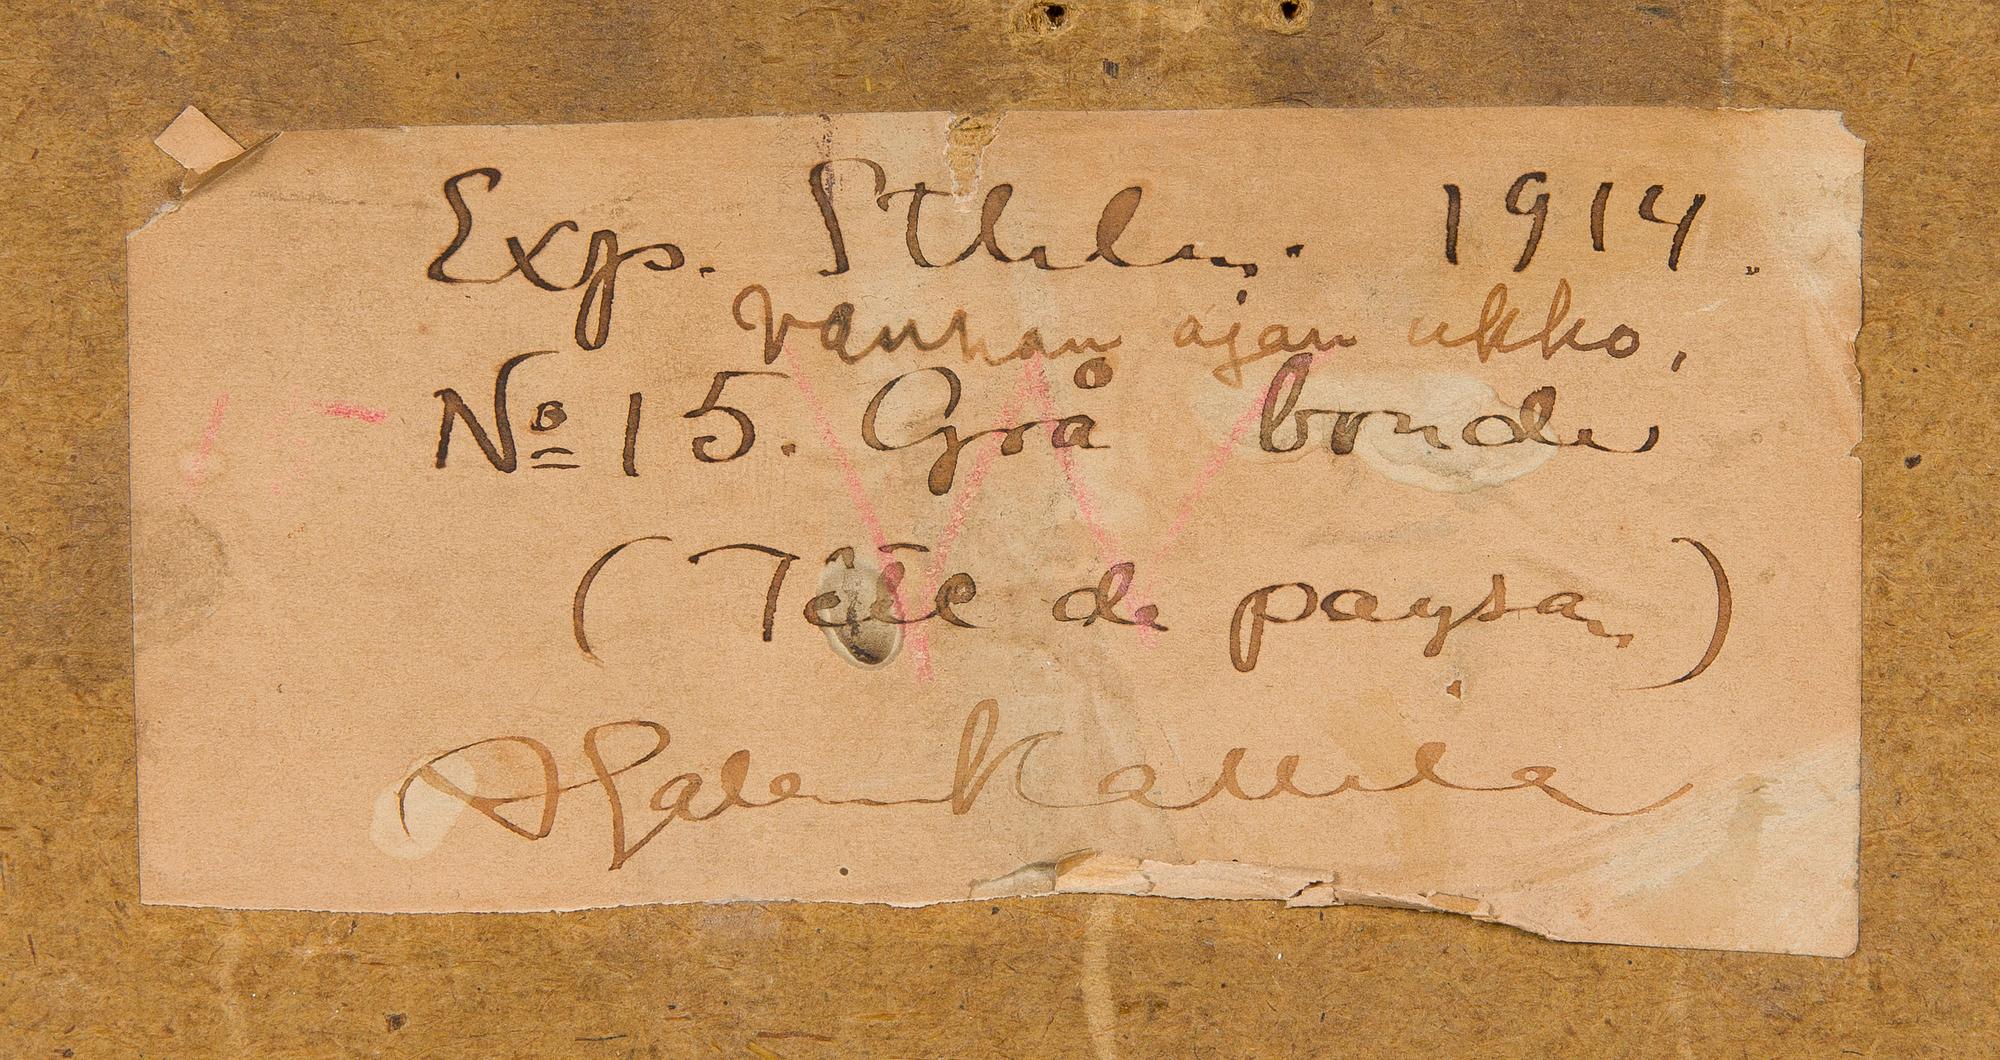 Exp. Sthlm. 1914.
Vanhan ajan ukko,
15 No 15. Grå bonde
(Tête de paysan)
A Gallen Kallela